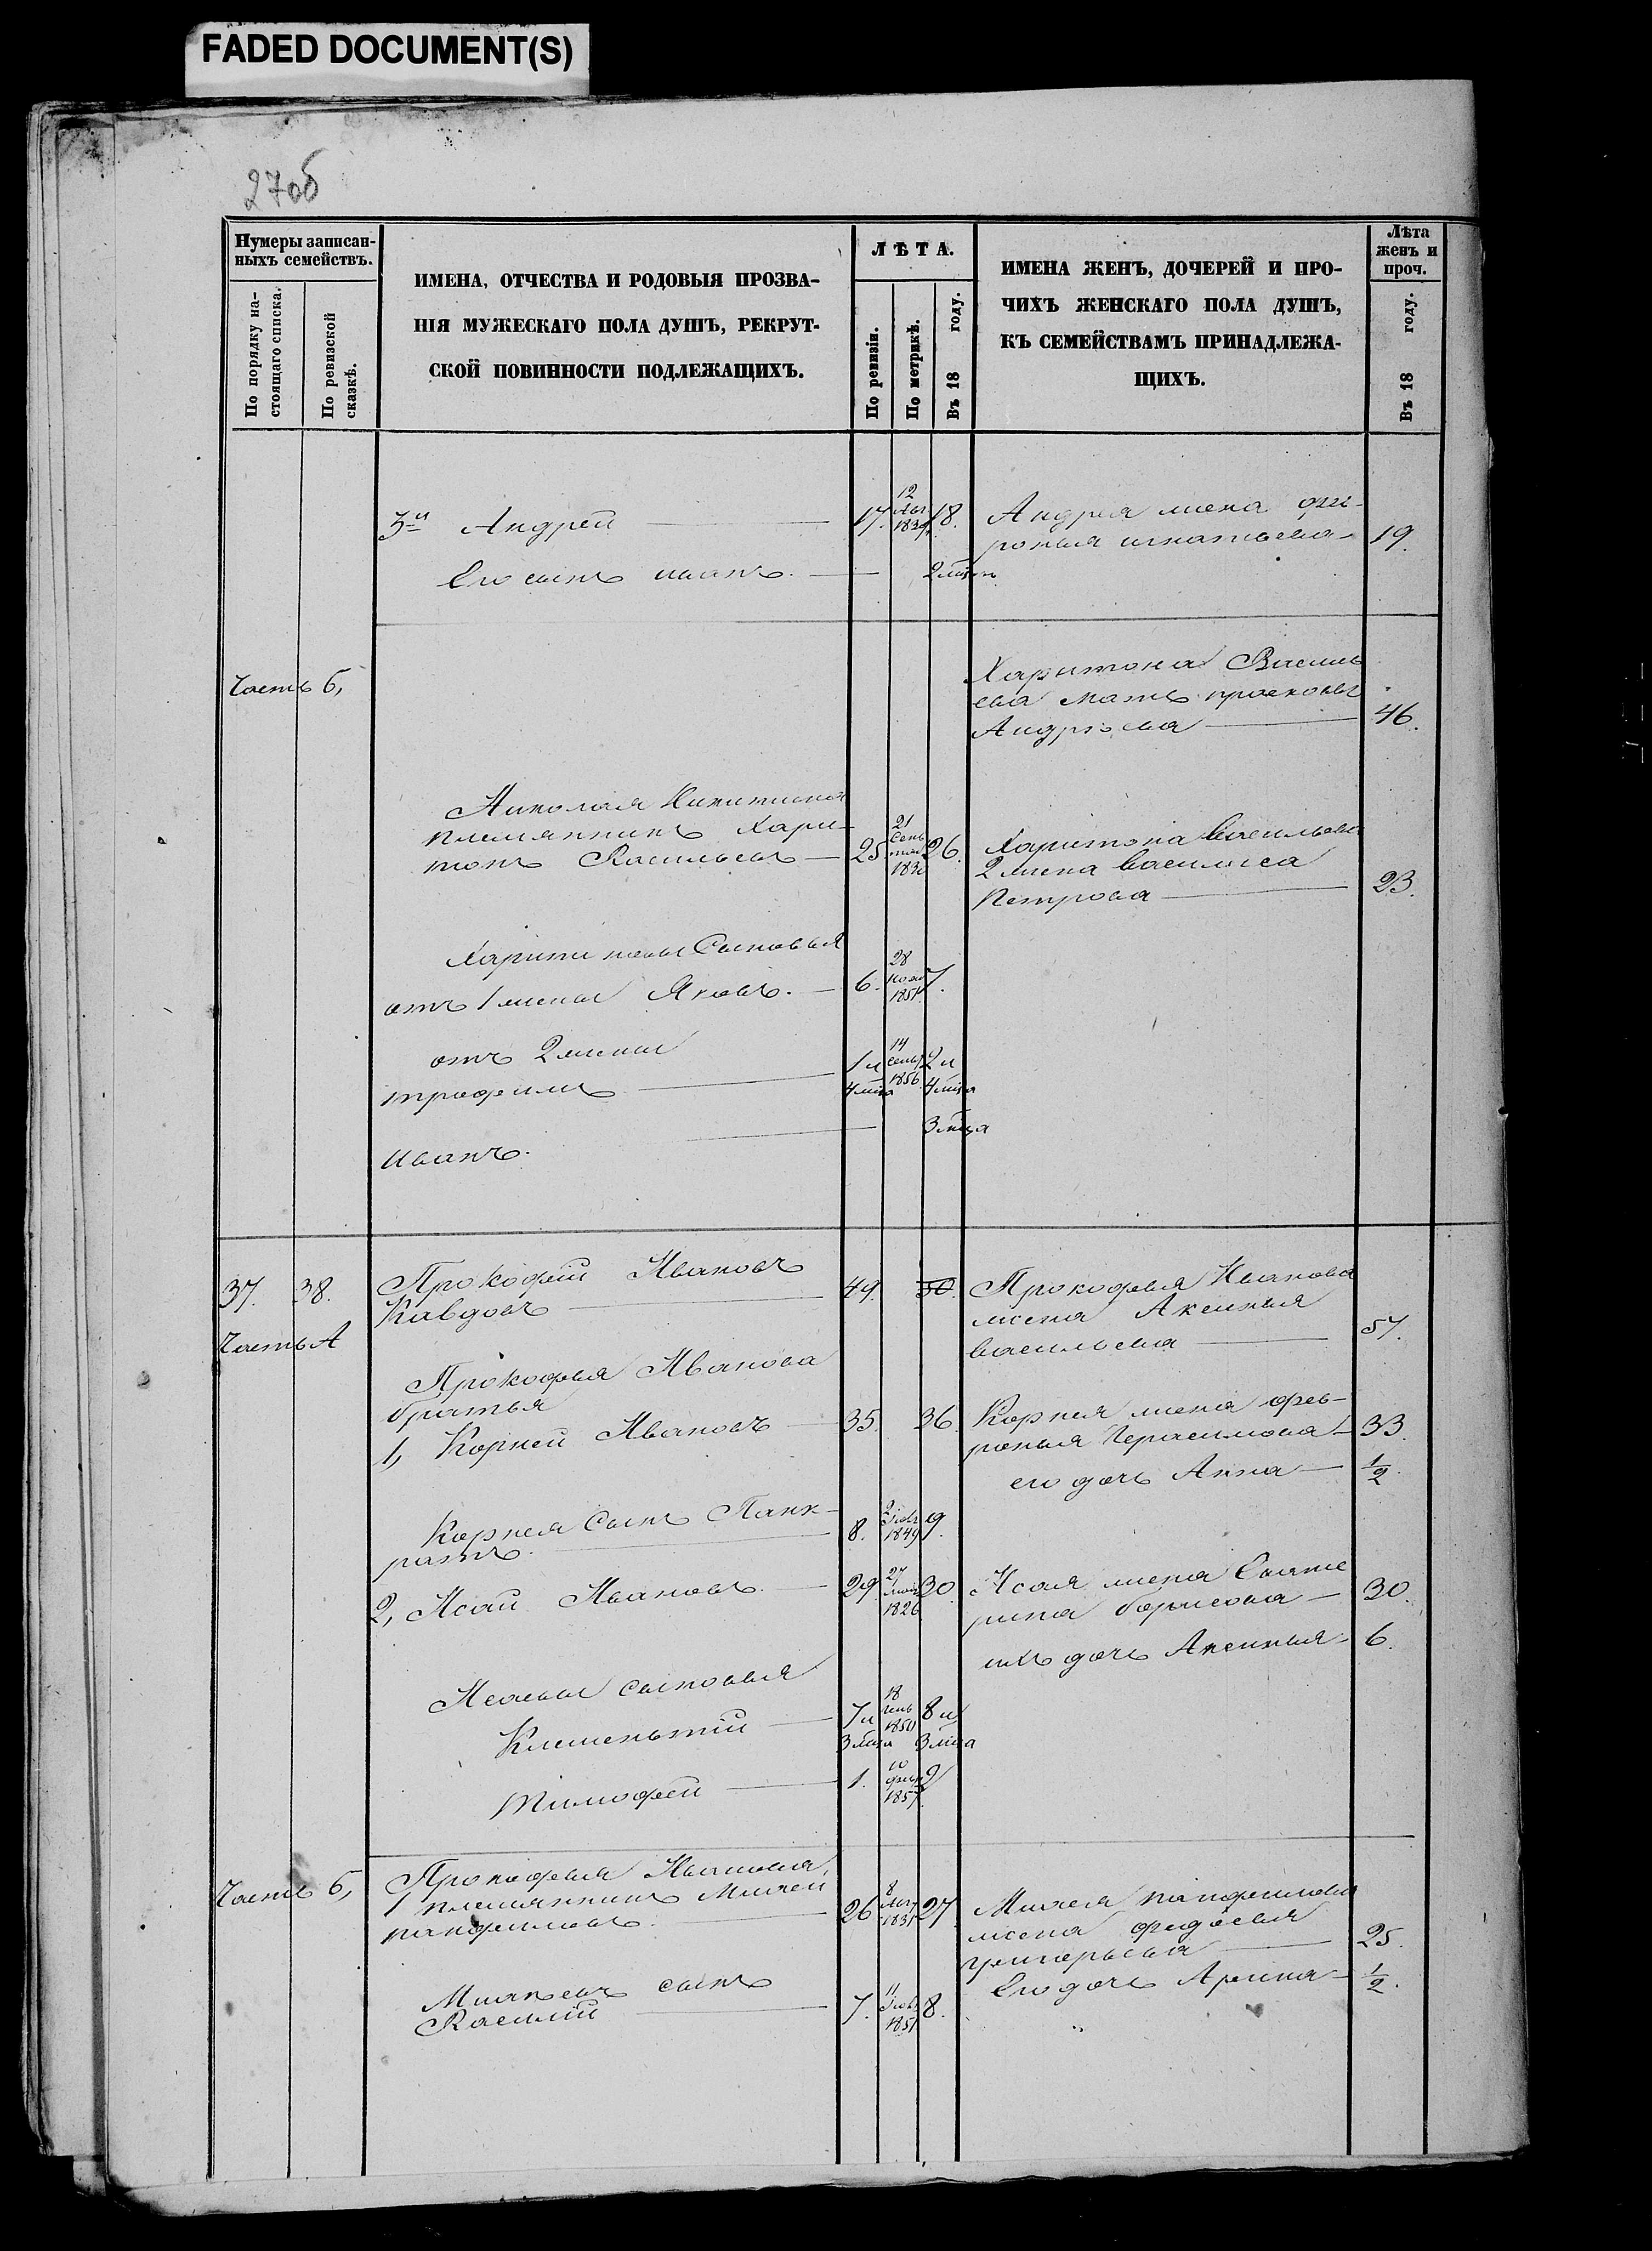 FADED DOCUMENT(S)
27об
Нумеры записан-
ныхъ семействъ.
По порядку на-
стоящаго списка.
По ревизской
сказкѣ.
ИМЕНА, ОТЧЕСТВА И РОДОВЫЯ ПРОЗВА-
НІЯ МУЖЕСКАГО ПОЛА ДУШЪ, РЕКРУТ-
СКОЙ ПОВИННОСТИ ПОДЛЕЖАЩИХЪ.
ЛѢТА.
По ревизіи.
По метрикѣ.
Въ 18 году.
ИМЕНА ЖЕНЪ, ДОЧЕРЕЙ И ПРО-
ЧИХЪ ЖЕНСКАГО ПОЛА ДУШЪ,
КЪ СЕМЕЙСТВАМЪ ПРИНАДЛЕЖА-
ЩИХЪ.
Лѣта
женъ и
проч.
Въ 18 году.
3й Андрей 17. 12 1839 18.
Андрея жена
игнатьева 19.
Его сынъ иванъ.
Часть б,
Харитона Василь
ева мать прасковья
Андрѣева 46.
Николая Никитина
племянникъ Хари-
тонъ Васильевъ 25 21 Сен 26.
Харитона Васильева
2 жена Василиса
Петрова 23.
Харитоновы Сыновья
отъ 1 жены Яковъ. 6. 28 ноя 1851 7.
отъ 2 жены
трофимъ 1 4 мѣца 14 сент 1856 2 4 мѣца
иванъ. 3 мѣца
37. 38. Прокофей Ивановъ
Кавдовъ 49. 50.
Прокофья Иванова
жена Аксинья
васильева 57.
Часть А
Прокофья Иванова
братья
1, Корней Ивановъ 35. 36.
Корнея жена фев-
ронья Герасимова 33.
его дочь Анна 1/2.
Корнея Сынъ Панк-
ратъ. 8. 2 1849 9.
2, Исай Ивановъ. 29. 27 1826 30.
Исая жена Екате
рина борисова 30.
ихъ дочь Аксинья 6.
Исаевы сыновья
Клементій 7 3 мѣца 18 1850 8 3 мѣца
тимофей 1. 10 февр 1857 2
Часть б,
Прокофья Иванова
1 племянникъ Михей
панфиловъ. 26 8 1831 27
Михея панфилова
жена федосья
григорьева 25.
Его дочь Арина 1/2.
Михѣевъ сынъ
Василій 7. 11 1851 8.